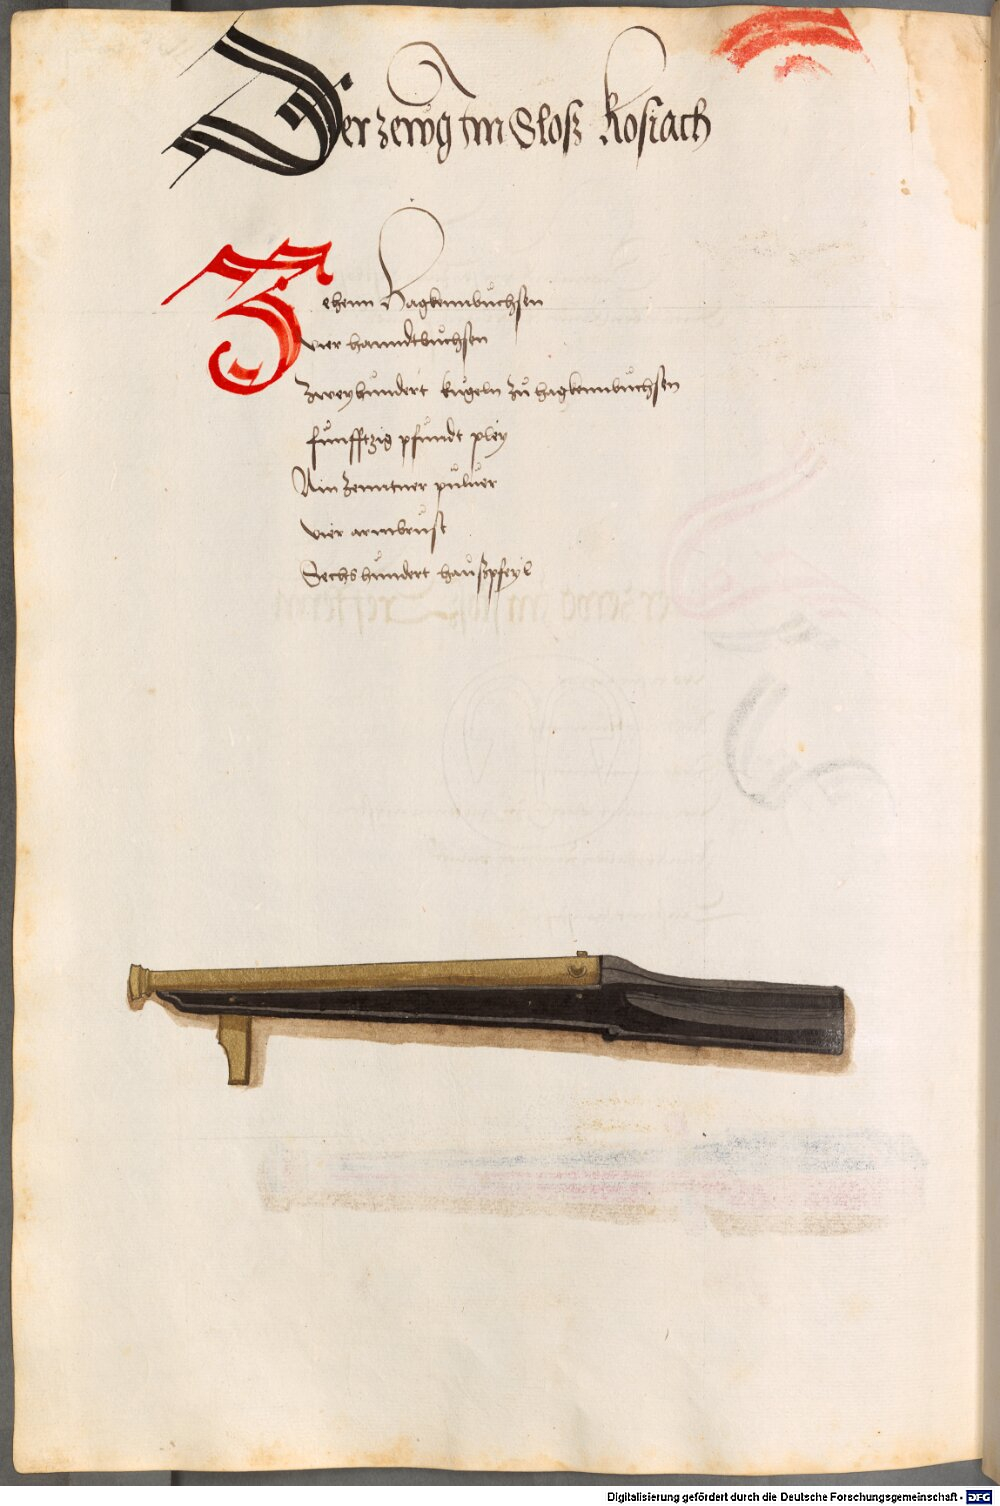 Der zewg im Sloß Rosiach
Zehenn Hagkennbuchsen
vier hanndtbuchsen
Zweyhundert kugeln zu hagkennbuchsen
funfftzig pfundt pley
Ain Zenntner puluer
vier armbrust
Sechshundert haußpfeyl
Digitalisierung gefördert durch die Deutsche Forschungsgemeinschaft - DFG